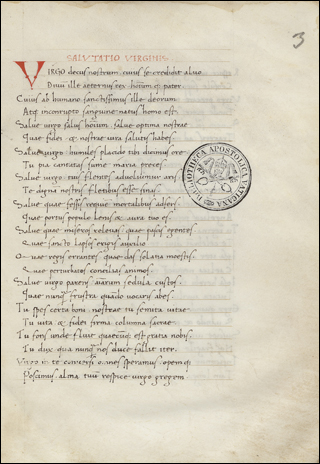 3
SALVTATIO VIRGINIS
VIRGO decus nostrum cuius se credidit aluo
Diuu ille aeternus rex hominum & pater
Cuius ab humano sanctissimus ille deorum
Atque incorrupto sanguine natus homo est
Salue uirgo salus hominum salue optima nostrae
Quae fidei & nostrae uara salutis habes
Salue uirgo humiles placido tibi dicimus ore
Tu pia cantatas sume maria preces
Salue uirgo tuis flentes aduoluimur aris
Te digna nostris fletibus esse sinus
Salue quae fessis requie mortalibus adfers
Quae portus populo lenis & aura tuo es
Salue quae miseros releuas quae pascis egentes
Quae sancto lapsos erigis auxilio
Quae regis errantes quae das solatia moestis
Quae perturbatos concilias animos
Salue uirgo parens animarum sedula custos
Quae nunquam frustra quando uocaris abes
Tu spes certa boni nostrae tu semita uitae
Tu uita & fidei firma columna sacrae
Tu fons unde fluit quaecunque est gratia nobis
Tu dux qua nunquam nos duce fallit iter
Virgo in te conuersi omnes speramus opemque
Poscimus alma tuum respice uirgo gregem
BIBLIOTHECA APOSTOLICA VATICANA